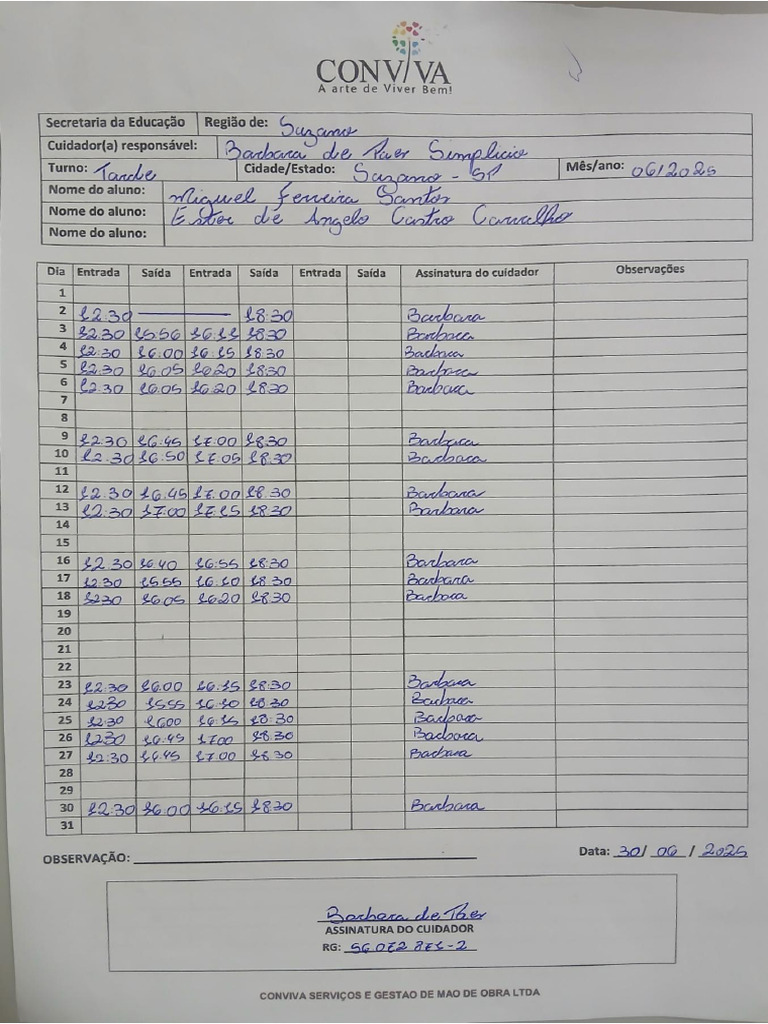 CONVIVA
A arte de Viver Bem!
Secretaria da Educação Região de: Suzano
Cuidador(a) responsável: Barbara de Paer Simplicio
Turno: Tarde Cidade/Estado: Suzano - SP Mês/ano: 06/2025
Nome do aluno: Miguel Ferreira Santos
Nome do aluno: Ester de Angelo Castro Carvalho
Nome do aluno:
Dia Entrada Saída Entrada Saída Entrada Saída Assinatura do cuidador Observações
1
2 12:30 18:30 Barbara
3 12:30 15:56 16:11 18:30 Barbara
4 12:30 16:00 16:15 18:30 Barbara
5 12:30 16:05 16:20 18:30 Barbara
6 12:30 16:05 16:20 18:30 Barbara
7
8
9 12:30 16:45 17:00 18:30 Barbara
10 12:30 16:50 17:05 18:30 Barbara
11
12 12:30 16:45 17:00 18:30 Barbara
13 12:30 17:00 17:15 18:30 Barbara
14
15
16 12:30 16:40 16:55 18:30 Barbara
17 12:30 15:55 16:10 18:30 Barbara
18 12:30 16:05 16:20 18:30 Barbara
19
20
21
22
23 12:30 16:00 16:15 18:30 Barbara
24 12:30 15:55 16:10 18:30 Barbara
25 12:30 16:00 16:15 18:30 Barbara
26 12:30 16:45 17:00 18:30 Barbara
27 12:30 16:45 17:00 18:30 Barbara
28
29
30 12:30 16:00 16:15 18:30 Barbara
31
OBSERVAÇÃO: Data: 30/ 06 / 2025
Barbara de Paer
ASSINATURA DO CUIDADOR
RG:
CONVIVA SERVIÇOS E GESTAO DE MAO DE OBRA LTDA